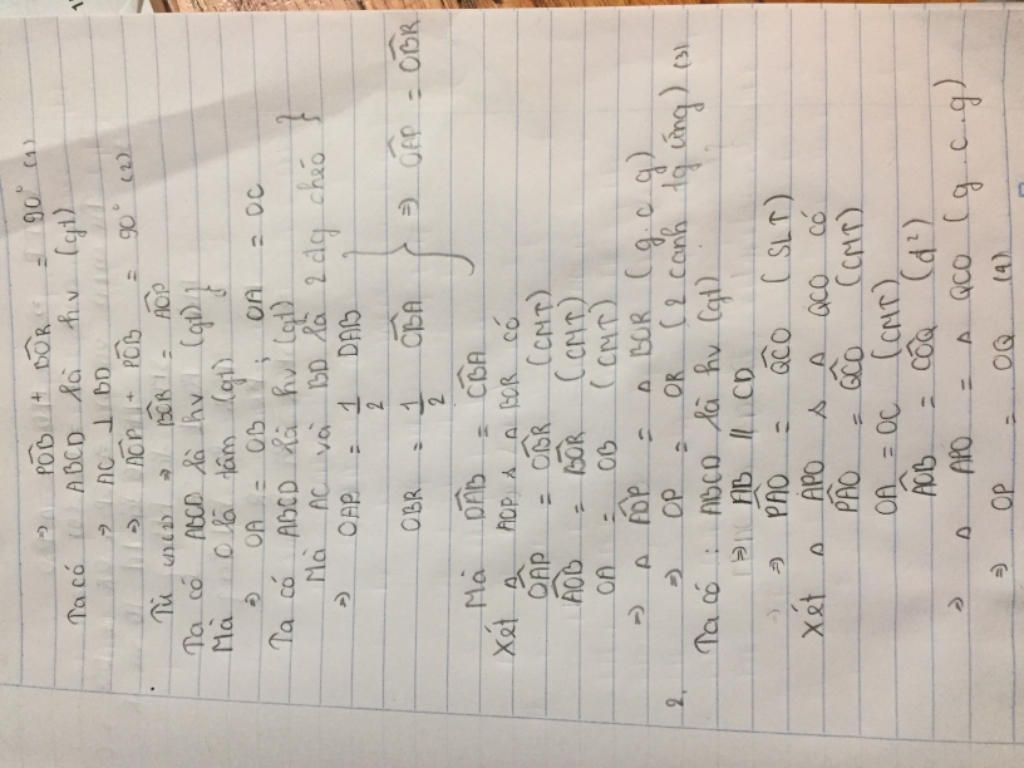 ⇒ P̂OB + B̂OR = 90° (1)
Ta có ABCD là hv (gt)
⇒ AC ⊥ BD
⇒ ÂOP + P̂OB = 90° (2)
Từ (1)(2) ⇒ B̂OR = ÂOP
Ta có ABCD là hv (gt) }
Mà O là tâm (gt) }
⇒ OA = OB ; OA = OC
Ta có ABCD là hv (gt)
Mà AC và BD là 2 đg chéo }
⇒ OAP = 1/2 DAB
OBR = 1/2 ÔBA } ⇒ ÔAP = ÔBR
Mà D̂AB = ĈBA
Xét Δ AOP & Δ BOR có
ÔAP = ÔBR (CMT)
ÂOB = B̂OR (CMT)
OA = OB (CMT)
⇒ Δ AOP = Δ BOR (g.c.g)
2. ⇒ OP = OR (2 cạnh tg ứng) (3)
Ta có : ABCD là hv (gt)
⇒ AB // CD
⇒ P̂AO = Q̂CO (SLT)
Xét Δ APO & Δ QCO có
P̂AO = Q̂CO (CMT)
OA = OC (CMT)
ÂOB = ĈOQ (đ²)
⇒ Δ APO = Δ QCO (g.c.g)
⇒ OP = OQ (4)